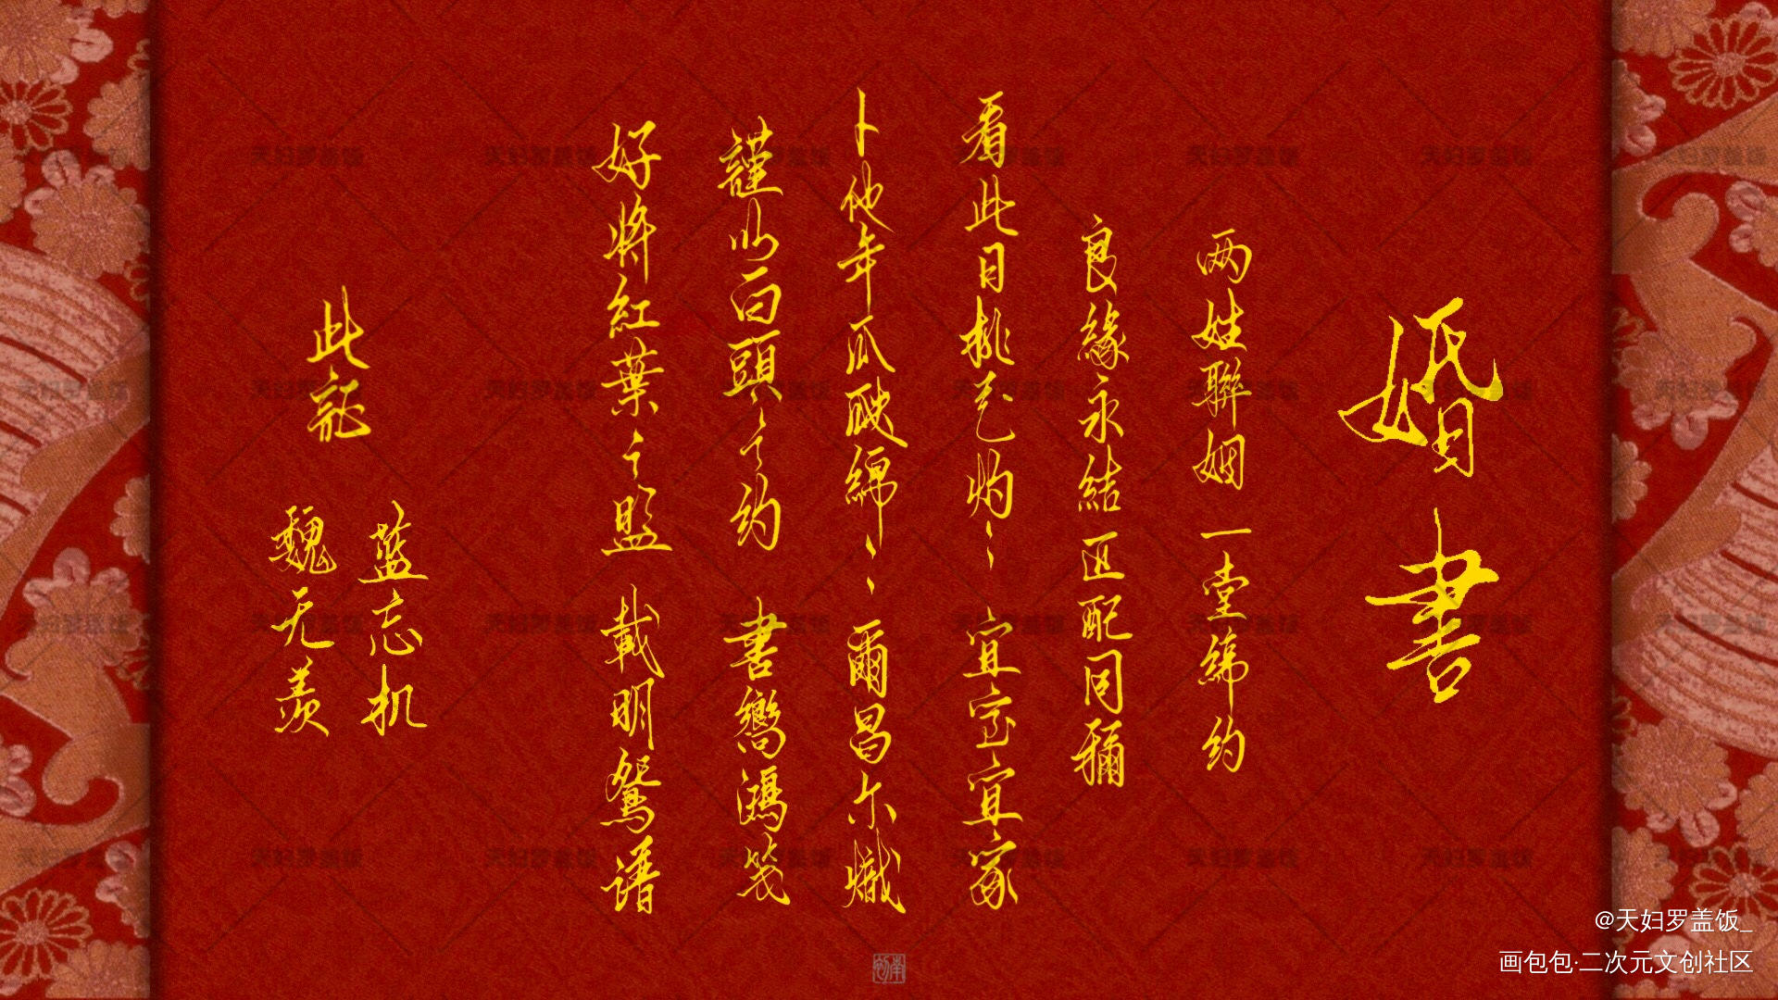 婚書
两姓聯姻 一堂締约
良緣永結 匹配同稱
看此日桃花灼灼 宜室宜家
卜他年瓜瓞綿綿 爾昌尔熾
謹以白頭之约 書嚮鴻箋
好將紅葉之盟 載明鴛谱
此証
蓝忘机
魏无羡
@天妇罗盖饭_
画包包·二次元文创社区